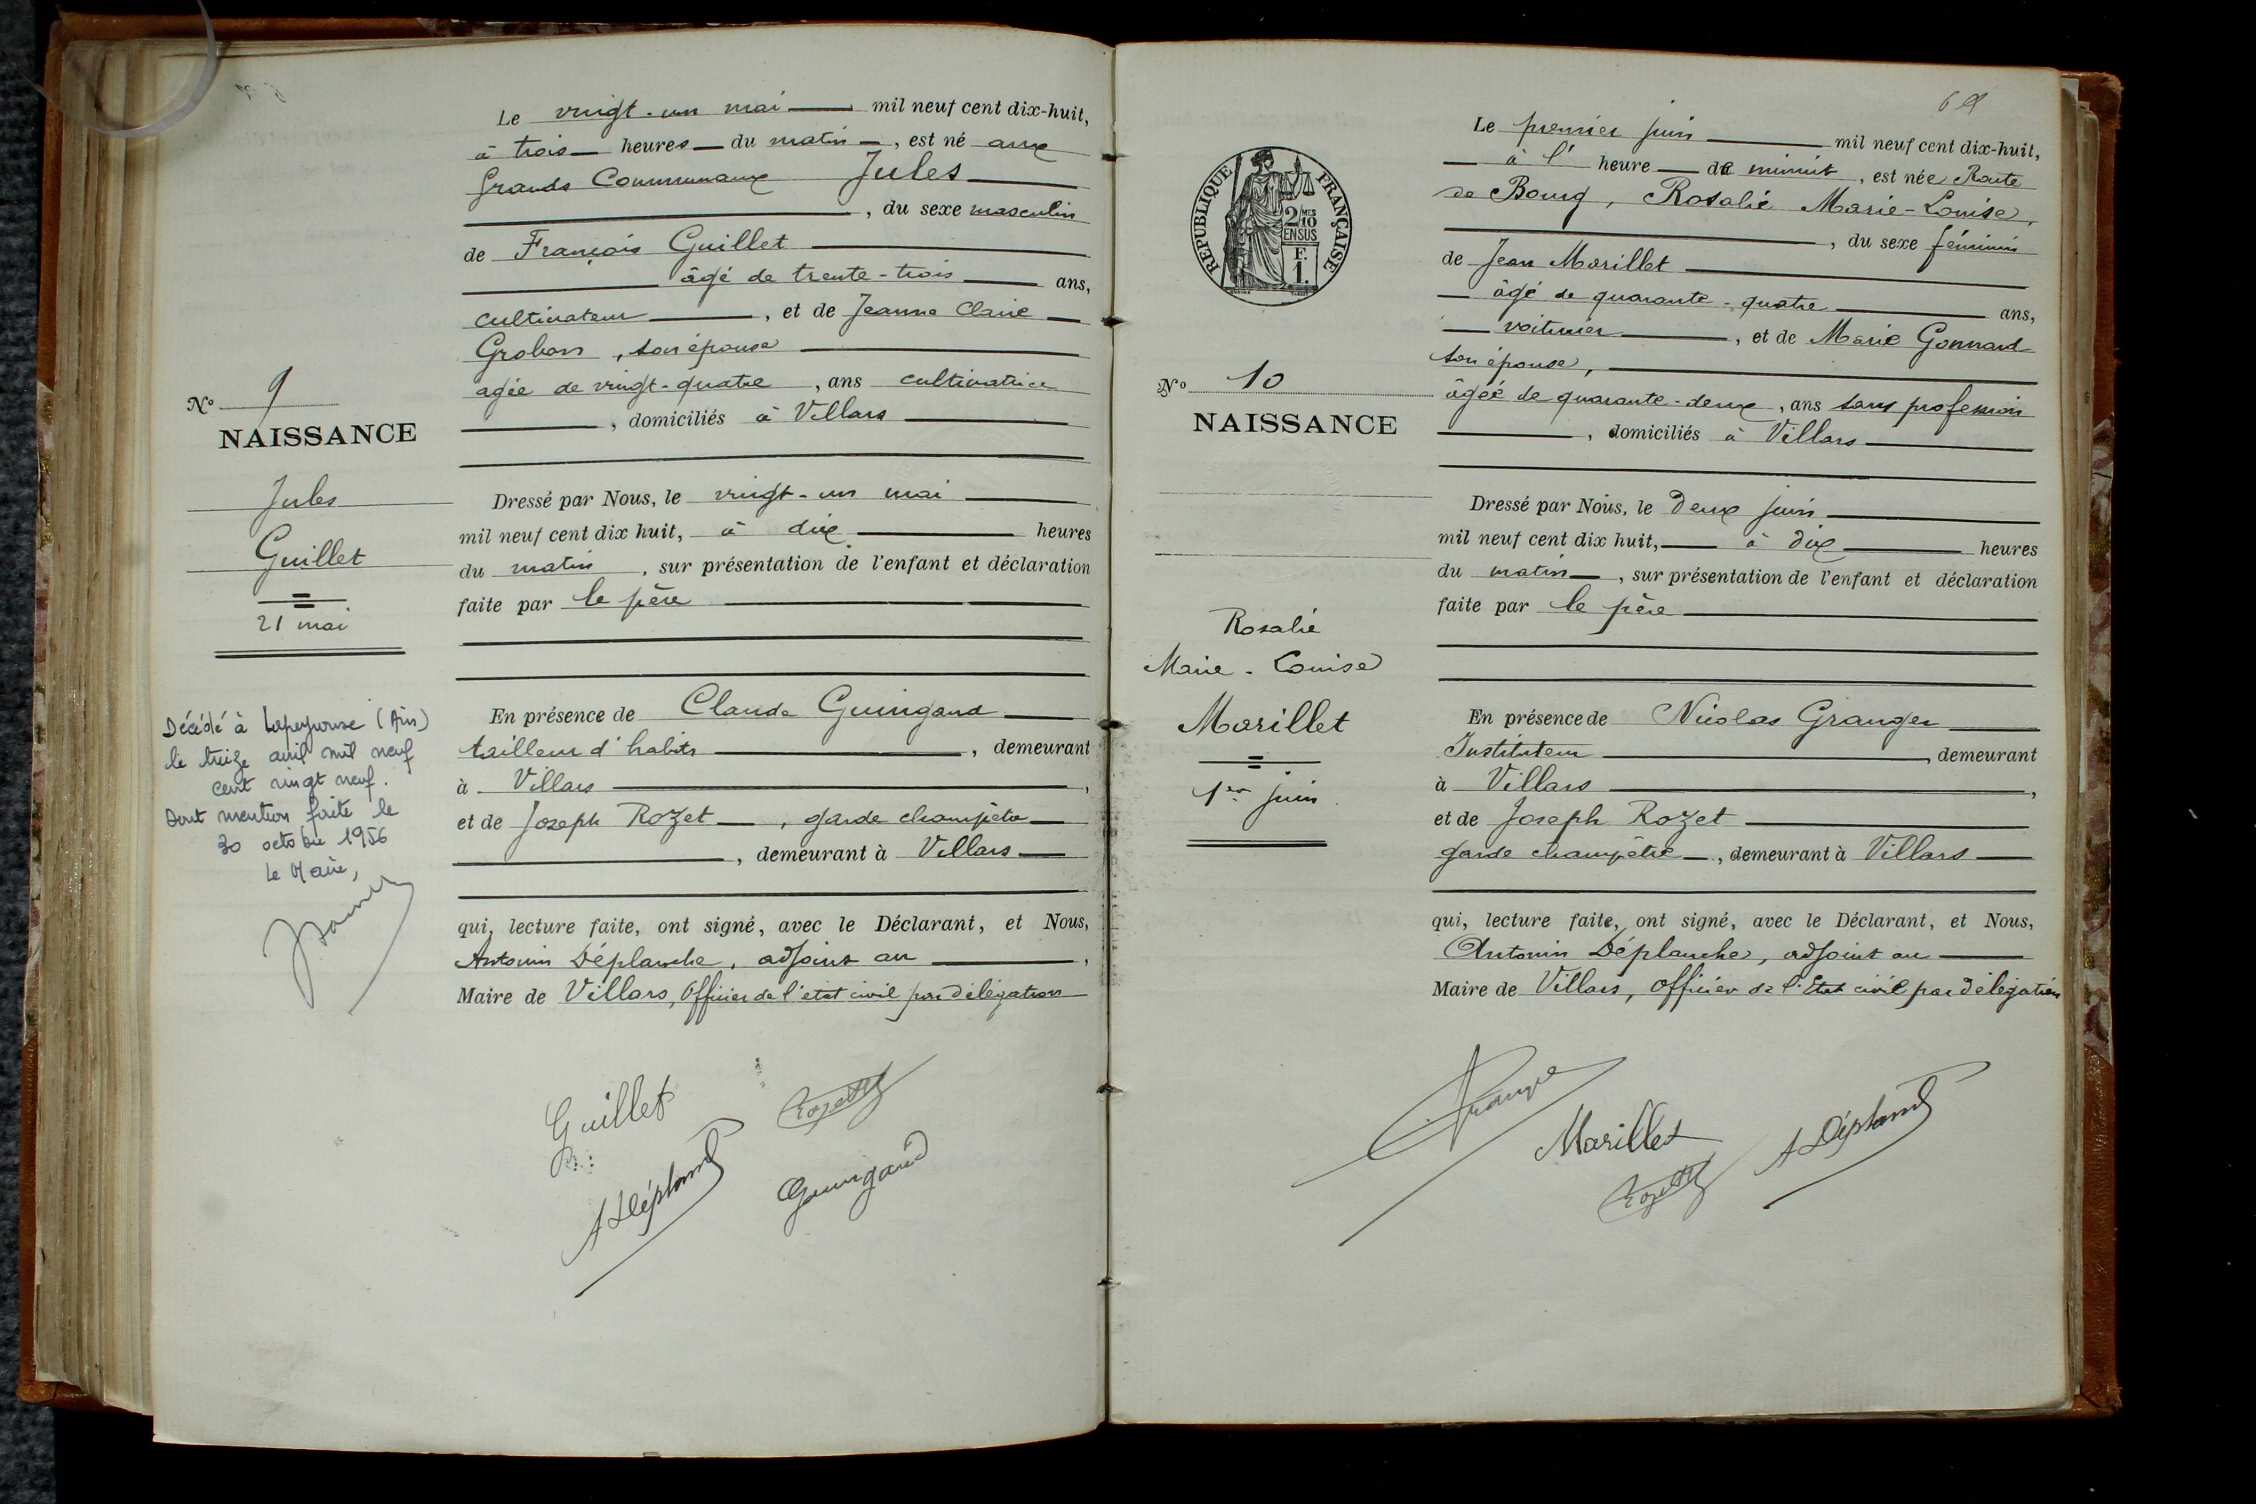 Le vingt-un mai mil neuf cent dix-huit,
à trois heures du matin, est né aux
Grands Communaux Jules
, du sexe masculin
de François Guillet
âgé de trente-trois ans,
cultivateur, et de Jeanne Claire
Grobon, son épouse
agée de vingt-quatre, ans cultivatrice
, domiciliés à Villars
Dressé par Nous, le vingt-un mai
mil neuf cent dix huit, à dix heures
du matin, sur présentation de l'enfant et déclaration
faite par le père
En présence de Claude Guingand
tailleur d'habits, demeurant
à Villars,
et de Joseph Rozet, garde champêtre
, demeurant à Villars
qui, lecture faite, ont signé, avec le Déclarant, et Nous,
Antonin Déplanche, adjoint au,
Maire de Villars, Officier de l'état civil par délégation
Guillet
Guingand
N° 9
NAISSANCE
Jules
Guillet
21 mai
Décédé à Lapeyrouse (Ain)
le treize avril mil neuf
cent vingt neuf.
Dont mention faite le
30 octobre 1956
Le Maire,
RÉPUBLIQUE FRANÇAISE
2/10
EN SUS
F.
1.
N° 10
NAISSANCE
Rosalie
Marie-Louise
Marillet
1er juin
Le premier juin mil neuf cent dix-huit,
à l' heure de minuit, est née Route
de Bourg, Rosalie Marie-Louise,
, du sexe féminin
de Jean Marillet
âgé de quarante-quatre ans,
voiturier, et de Marie Gonnard
son épouse,
âgée de quarante-deux, ans sans profession
, domiciliés à Villars
Dressé par Nous, le deux juin
mil neuf cent dix huit, à dix heures
du matin, sur présentation de l'enfant et déclaration
faite par le père
En présence de Nicolas Granger
Instituteur, demeurant
à Villars,
et de Joseph Rozet
garde champêtre, demeurant à Villars
qui, lecture faite, ont signé, avec le Déclarant, et Nous,
Antonin Déplanche, adjoint au
Maire de Villars, officier de l'Etat civil par délégation
Marillet